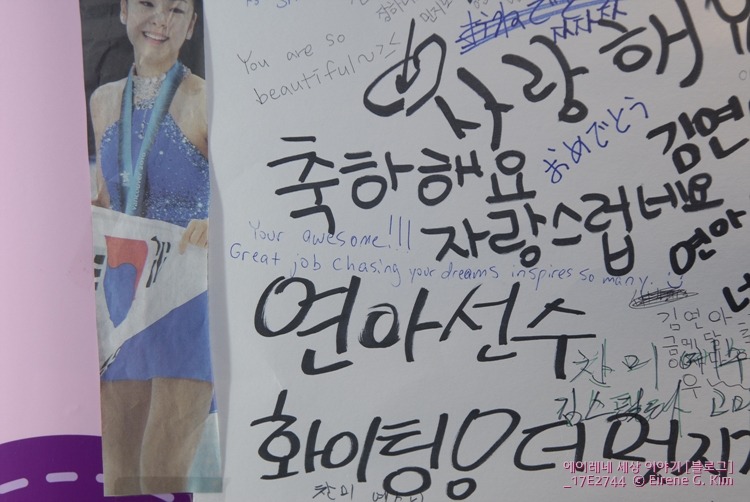 You are so
beautiful~><
사랑해
おめでとう
축하해요
김연
자랑스럽네요
연아
Your awesome!!!
Great job chasing your dreams inspires so many. :)
연아선수
김연아
금메달
찬미
화이팅 더 멋진
에이레네 세상 이야기 [블로그]
_17E2744 © Eirene G. Kim